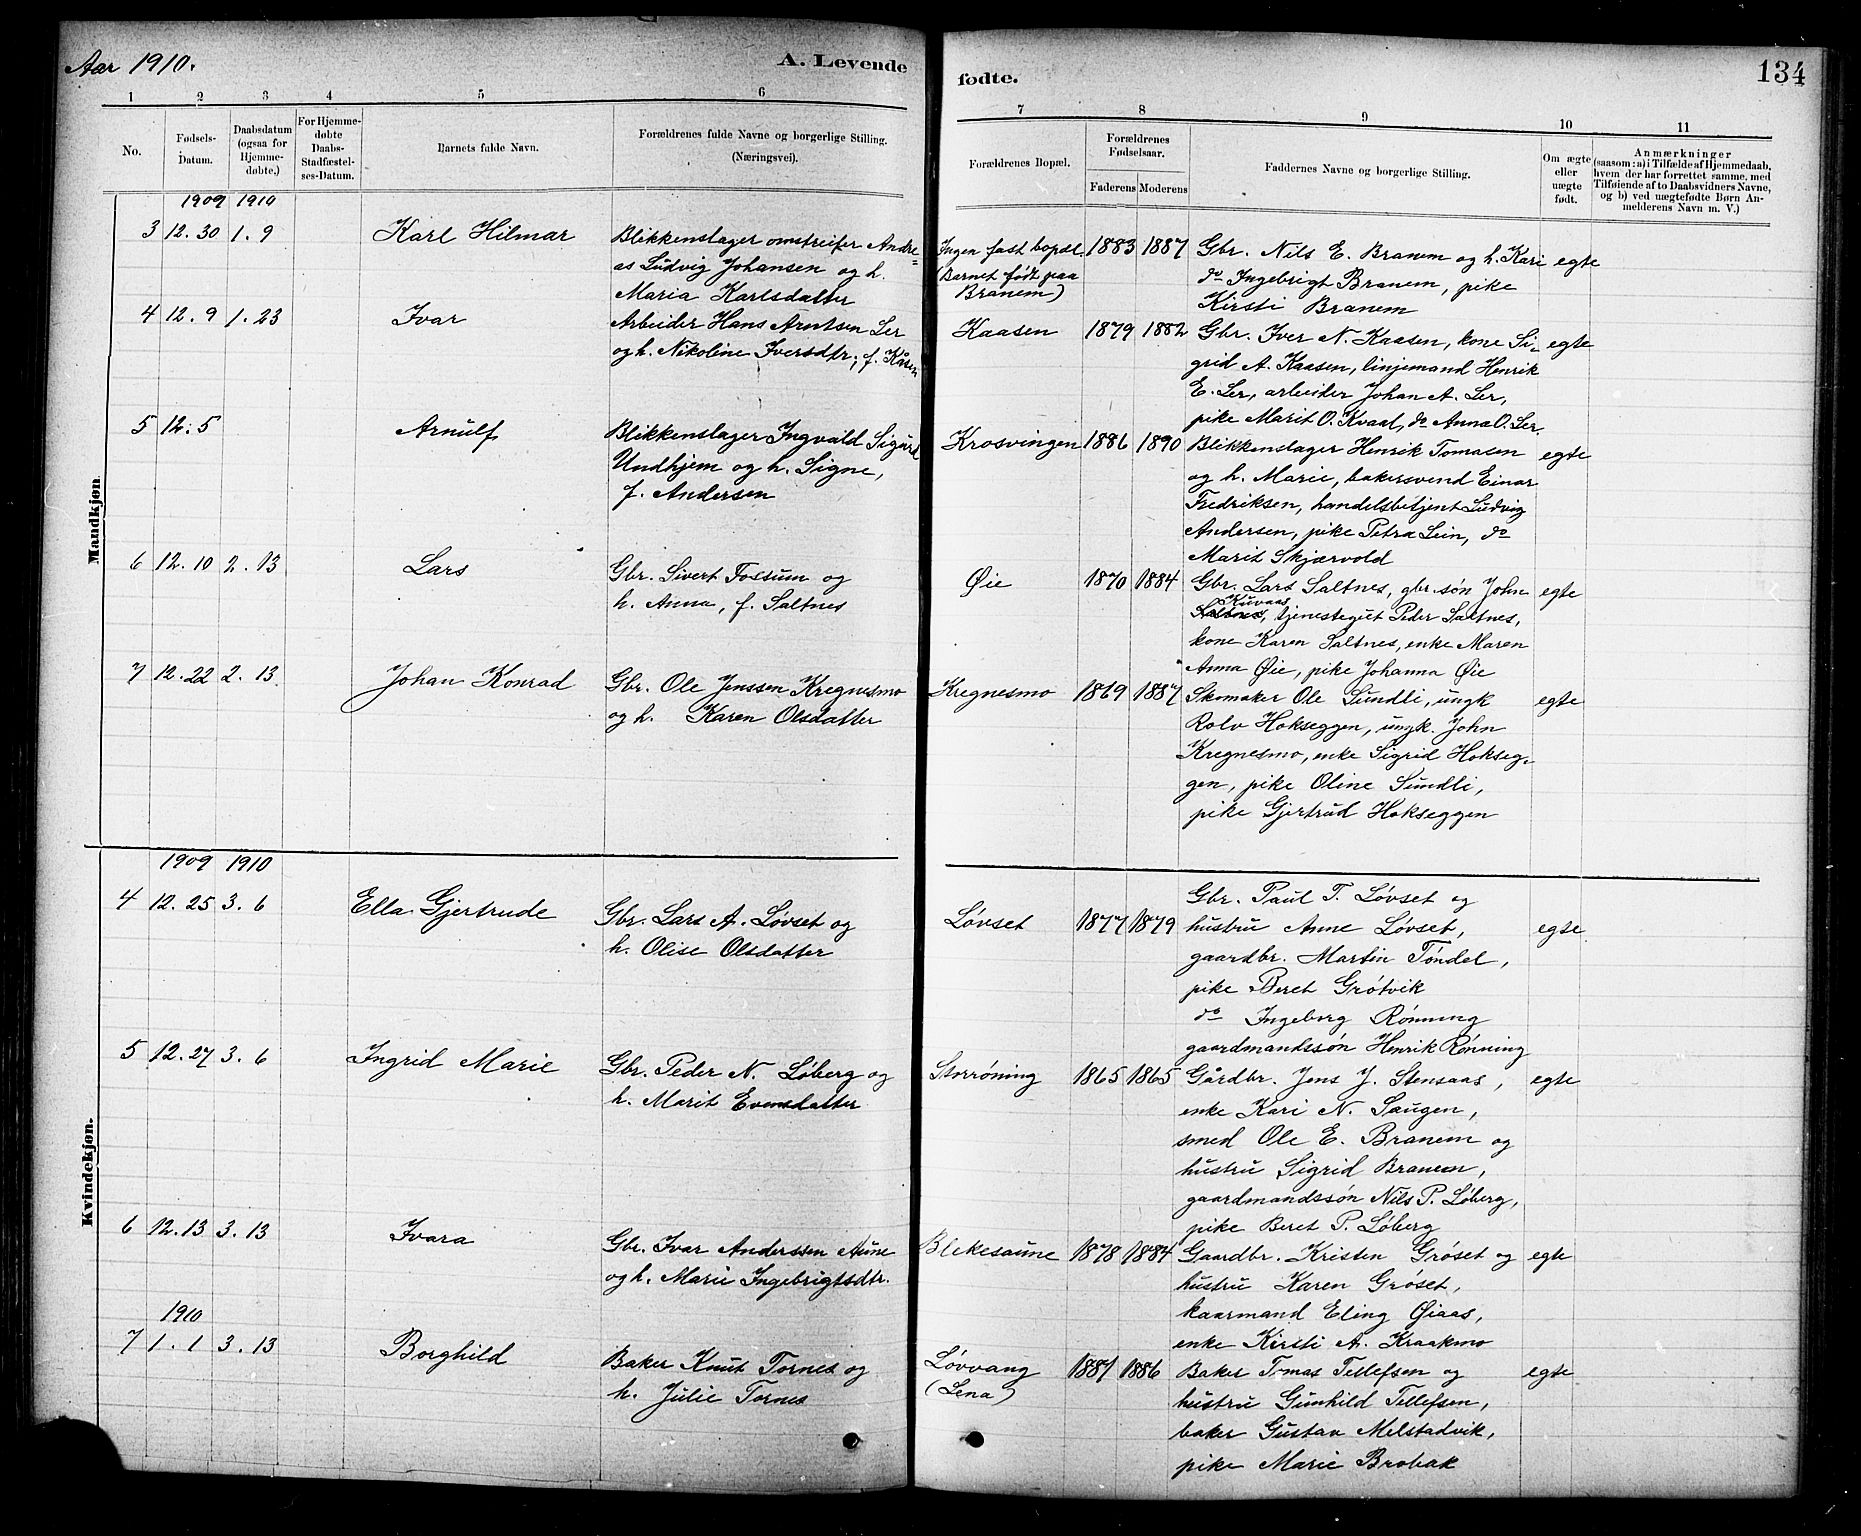 Aar 1910.
A. Levende
fødte.
134
1 2 3 4 5 6
7 8 9 10 11
No.
Fødsels-
Datum.
Daabsdatum
(ogsaa for
Hjemme-
døbte.)
For Hjemme-
døbte
Daabs-
Stadfæstel-
ses-Datum.
Barnets fulde Navn.
Forældrenes fulde Navne og borgerlige Stilling.
(Næringsvei).
Forældrenes Bopæl.
Forældrenes
Fødselsaar.
Faderens Moderens
Faddernes Navne og borgerlige Stilling.
Om ægte
eller
uægte
født.
Anmærkninger
(saasom: a) i Tilfælde af Hjemmedaab,
hvem der har forrettet samme, med
Tilføiende af to Daabsvidners Navne,
og b) ved uægtefødte Børn An-
melderens Navn m. V.)
Mandkjøn.
1909 1910
3 12. 30 1. 9 Karl Hilmar
Blikkenslager omstreifer Andre=
as Ludvig Johansen og h.
Maria Karlsdatter
Ingen fast bopæl.
(Barnet født paa
Branem)
1883 1887
Gbr. Nils E. Branem og h. Kari
do Ingebrigt Branem, pike
Kirsti Branem
egte
4 12. 9 1. 23 Ivar
Arbeider Hans Arntsen Ler
og h. Nikoline Iversdtr, f. Kåsen
Kaasen
1879 1882
Gbr. Iver N. Kaasen, kone Si-
grid A. Kaasen, linjemand Henrik
E. Ler, arbeider Johan A. Ler,
pike Marit O. Kvaal, do Anna O. Ler.
egte
5 12. 5 Arnulf
Blikkenslager Ingvald Sigurd
Undhjem og h. Signe,
f. Andersen
Krosvingen
1886 1890
Blikkenslager Henrik Tomasen
og h. Marie, bakersvend Einar
Fredriksen, handelsbetjent Ludvig
Andersen, pike Petra Lein, do
Marit Skjærvold
egte
6 12. 10 2. 13 Lars
Gbr. Sivert Fossum og
h. Anna, f. Saltnes
Øie
1870 1884
Gbr. Lars Saltnes, gbr.søn John
Kuvaas
Saltnes, tjenestegut Peder Saltnes,
kone Karen Saltnes, enke Maren
Anna Øie, pike Johanna Øie
egte
7 12. 22 2. 13. Johan Konrad
Gbr. Ole Jenssen Kregnesmo
og h. Karen Olsdatter
Kregnesmo
1869 1887
Skomaker Ole Sundli, ungk
Rolv Hokseggen, ungk. John
Kregnesmo, enke Sigrid Hokseg-
gen, pike Oline Sundli,
pike Gjertrud Hokseggen
egte
Kvindekjøn.
1909 1910
4 12. 25 3. 6 Ella Gjertrude
Gbr. Lars A. Løvset og
h. Olise Olsdatter
Løvset
1877 1879
Gbr. Paul T. Løvset og
hustru Anne Løvset,
gaardbr. Martin Tøndel,
pike Beret Grøtvik
do Ingeborg Rønning
gaardmandssøn Henrik Rønning
egte
5 12. 27 3. 6 Ingrid Marie
Gbr. Peder N. Løberg og
h. Marit Evensdatter
Storrøning
1865 1865
Gårdbr. Jens J. Stensaas,
enke Kari N. Saugen,
smed Ole E. Branem og
hustru Sigrid Branem,
gaardmandssøn Nils P. Løberg,
pike Beret P. Løberg
egte
6 12. 13 3. 13 Ivara
Gbr. Ivar Anderssen Aune
og h. Marie Ingebrigtsdtr.
Blekesaune
1878 1884
Gaardbr. Kristen Grøset og
hustru Karen Grøset,
kaarmand Eling Øiaas,
enke Kirsti A. Kraakmo
egte
1910
7 1. 1 3. 13 Borghild
Baker Knut Tornes og
h. Julie Tornes
Løvvang
(Lena)
1887 1886
Baker Tomas Tellefsen og
hustru Gunhild Tellefsen,
baker Gustav Melstadvik,
pike Marie Brobak
egte